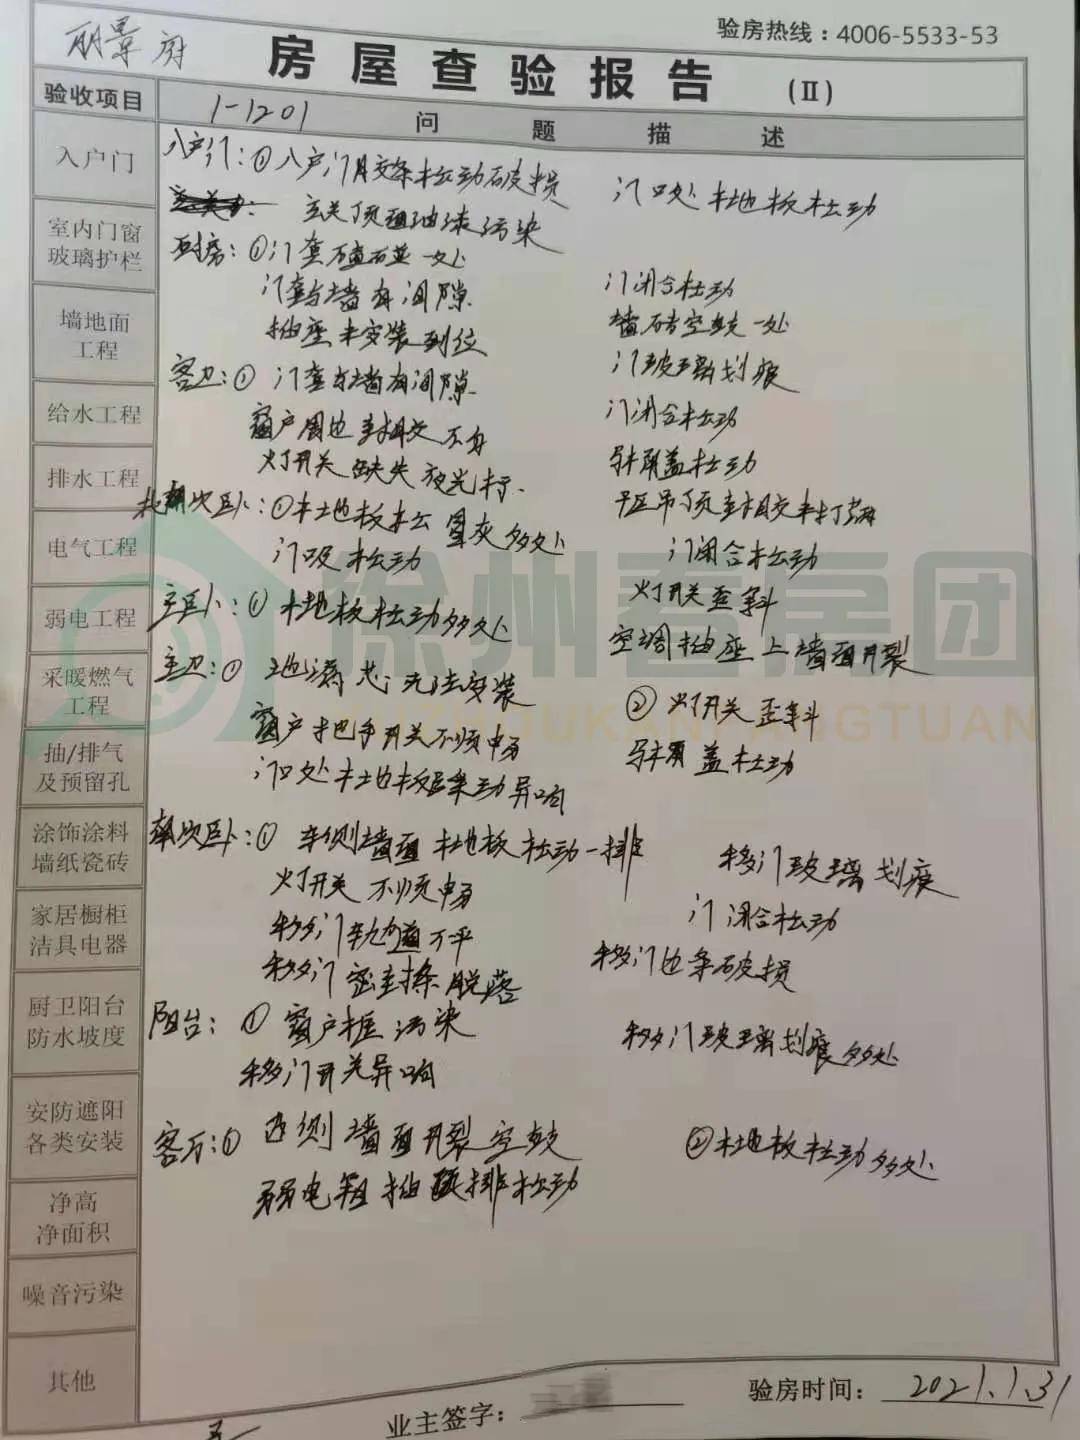 丽景府
验房热线：4006-5533-53
房屋查验报告 (Ⅱ)
验收项目
1-1201
问题描述
入户门
室内门窗
玻璃护栏
墙地面
工程
给水工程
排水工程
电气工程
弱电工程
采暖燃气
工程
抽/排气
及预留孔
涂饰涂料
墙纸瓷砖
家居橱柜
洁具电器
厨卫阳台
防水坡度
安防遮阳
各类安装
净高
净面积
噪音污染
其他
入户门：①入户门胶条松动破损 门口处木地板松动
玄关顶面油漆污染
厨房：①门套磕碰一处
门套与墙有间隙 门闭合松动
插座未安装到位 墙砖空鼓一处
客卫：① 门套与墙有间隙 门玻璃划痕
窗户周边打胶不匀 门闭合松动
灯开关缺失 马桶盖松动
次卧：①木地板松 冒灰多处 干区吊顶打胶
门吸松动 门闭合松动
主卧：① 木地板松动多处 灯开关歪斜
空调插座上墙面开裂
主卫：① 地漏芯无法安装 ② 灯开关歪斜
窗户把手开关不顺畅 马桶盖松动
门口处木地板松动异响
次卧：① 东侧墙面木地板松动一排 移门玻璃划痕
灯开关不顺畅 门闭合松动
移门轨道不平 移门边条破损
移门密封条脱落
阳台：① 窗户框污染 移门玻璃划痕多处
移门开关异响
客厅：① 西侧墙面开裂空鼓 ②木地板松动多处
弱电箱插排松动
徐州看房团
XUZHOUKANFANGTUAN
业主签字：
验房时间：2021.1.31